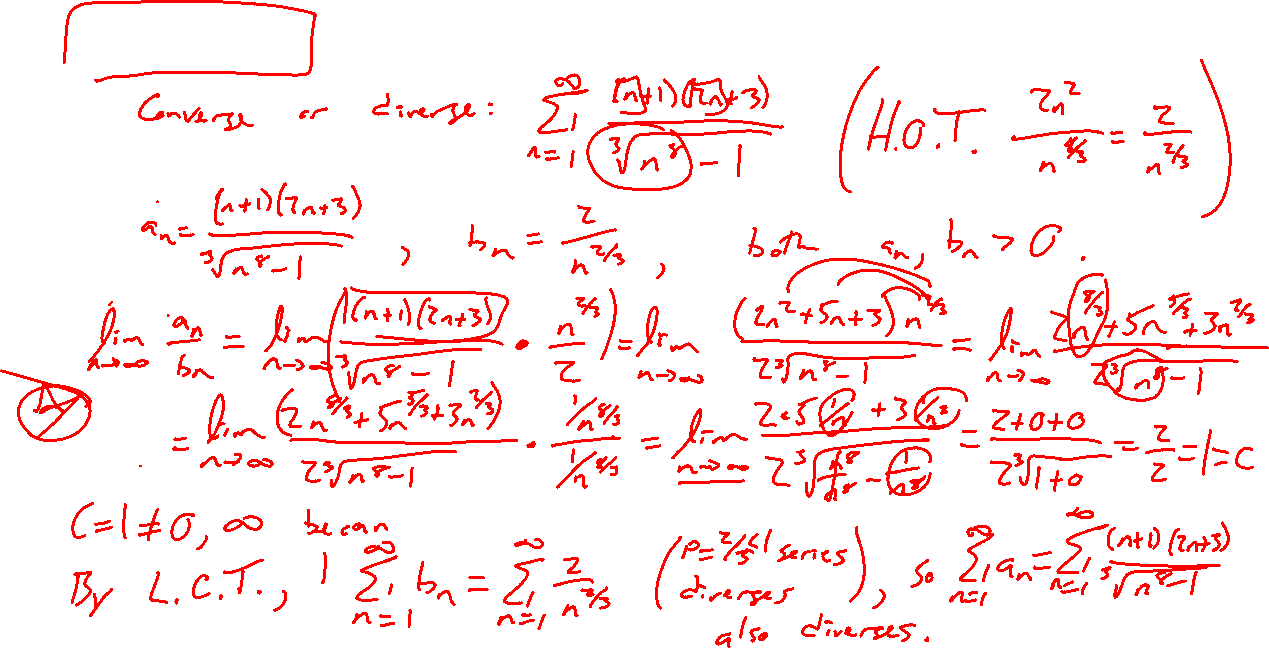 Converge or diverge: ∑_{n=1}^{∞} (n+1)(2n+3) / (∛(n⁸-1)) (H.O.T. 2n² / n^{8/3} = 2 / n^{2/3})
a_n = (n+1)(2n+3) / ∛(n⁸-1) , b_n = 2 / n^{2/3} , both a_n, b_n > 0.
lim_{n→∞} a_n / b_n = lim_{n→∞} ( (n+1)(2n+3) / ∛(n⁸-1) • n^{2/3} / 2 ) = lim_{n→∞} (2n²+5n+3) n^{2/3} / 2∛(n⁸-1) = lim_{n→∞} 2n^{8/3}+5n^{5/3}+3n^{2/3} / 2∛(n⁸-1)
= lim_{n→∞} (2n^{8/3}+5n^{5/3}+3n^{2/3}) / 2∛(n⁸-1) • 1/n^{8/3} / 1/n^{8/3} = lim_{n→∞} 2+5(1/n)+3(1/n²) / 2∛(n⁸/n⁸ - 1/n⁸) = 2+0+0 / 2∛(1+0) = 2/2 = 1 = C
C=1≠0, ∞ because
By L.C.T., ∑_{n=1}^{∞} b_n = ∑_{n=1}^{∞} 2 / n^{2/3} (p=2/3<1 series diverges), so ∑_{n=1}^{∞} a_n = ∑_{n=1}^{∞} (n+1)(2n+3) / ∛(n⁸-1)
also diverges.